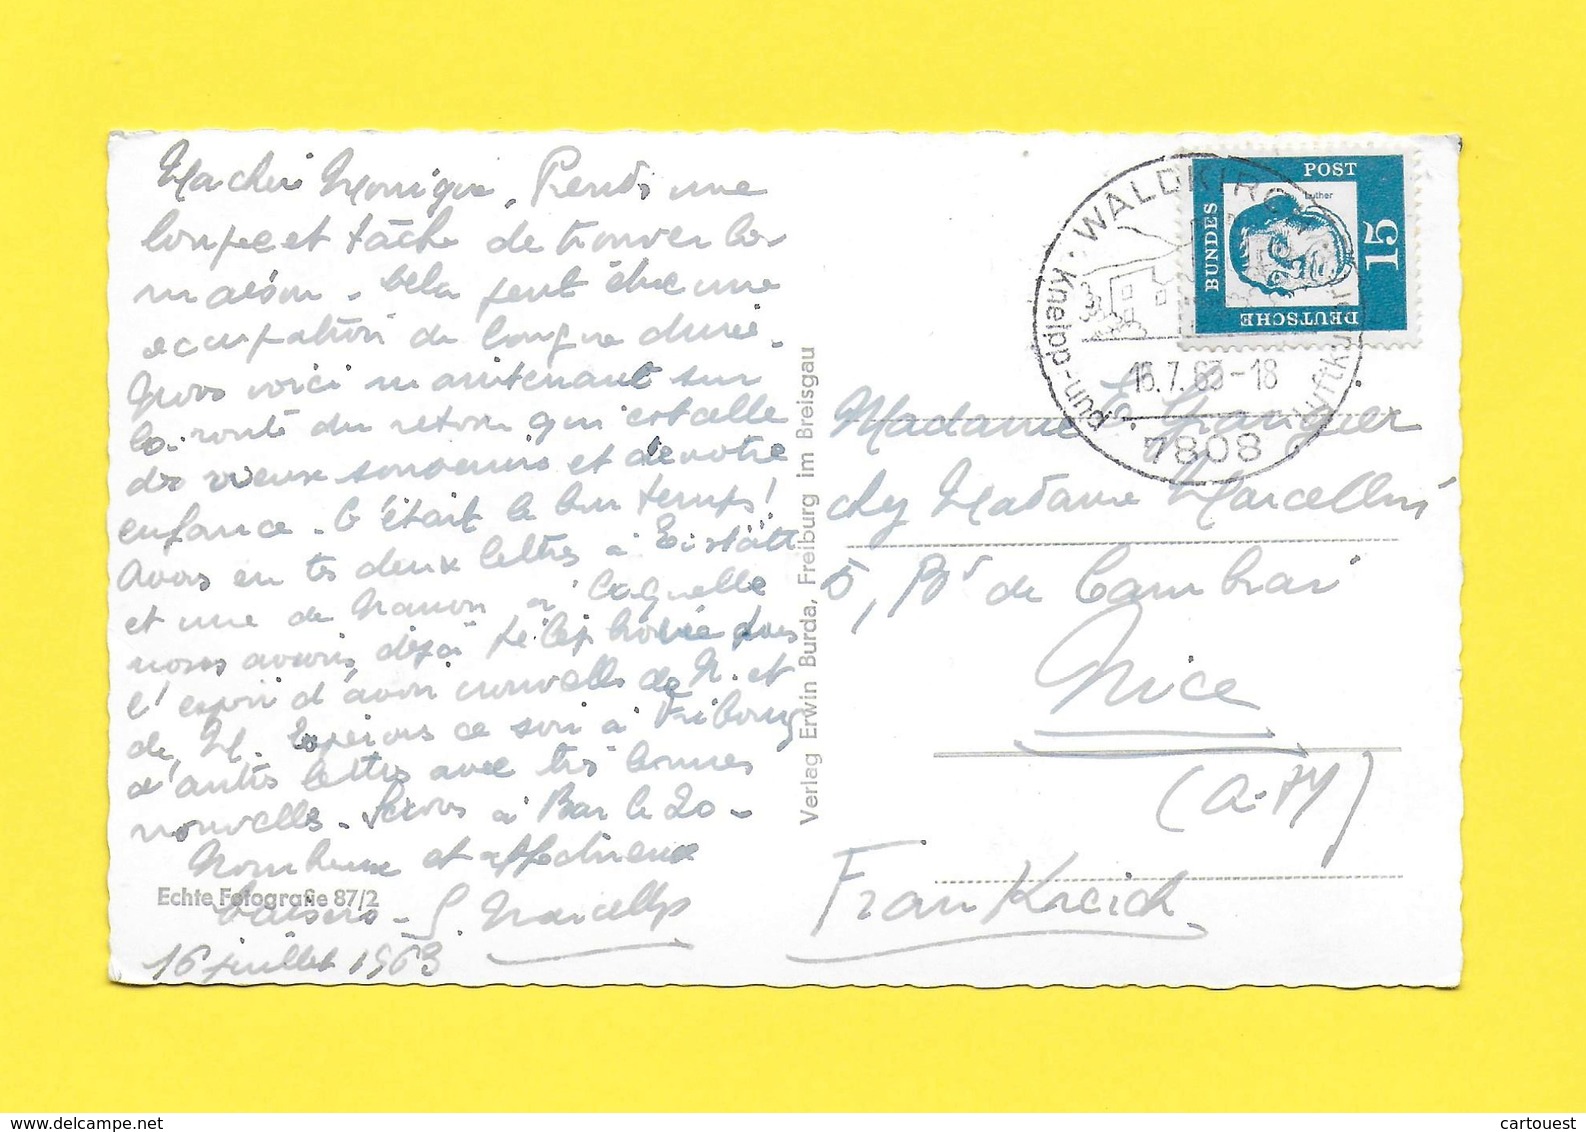 Ma chère Monique. Prends une
loupe et tâche de trouver la
maison. Cela peut être une
occupation de longue durée.
Nous voici maintenant sur
la route du retour qui est celle
de vieux souvenirs et de votre
enfance. C'était le bon temps!
Avons eu tes deux lettres à
et une de Manon à laquelle
nous avons déjà téléphoné dans
l'espoir d'avoir nouvelles de N. et
de M. Espérons ce soir à Fribourg
d'autres lettres avec très bonnes
nouvelles. Serons à Bar le 20 -
Nombreux et affectueux
baisers - G. Marcellys
16 juillet 1963
Echte Fotografie 87/2
Verlag Erwin Burda, Freiburg im Breisgau
WALDKIRCH
Kneipp- und Luftkurort
16.7.63-18
7808
DEUTSCHE BUNDESPOST
15
Luther
Madame E. Granguer
chez Madame Marcellin
5, Bd de Cambrai
Nice
(A-M)
Frankreich
cartouest
www.delcampe.net